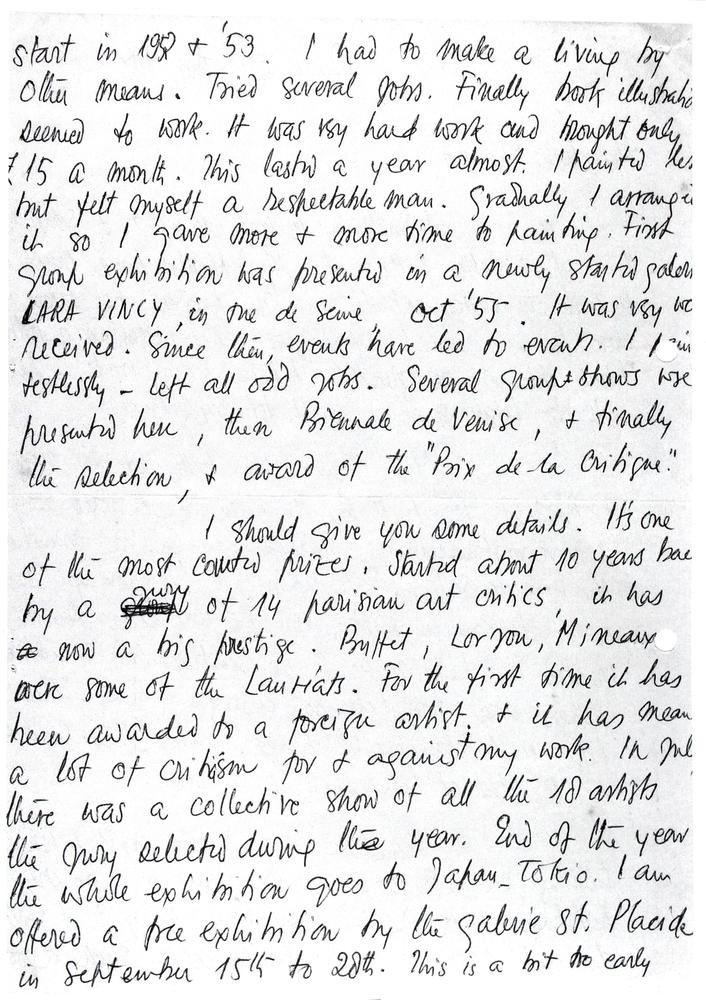 start in 1952 + '53. I had to make a living by
other means. Tried several jobs. Finally book illustratio
seemed to work. It was vry hard work and brought only
£15 a month. This lastd a year almost. I painted les
but felt myself a respectable man. Gradually I arrange
it so I gave more + more time to painting. First
group exhibition was presentd in a newly startd galeri
LARA VINCY, in rue de Seine, oct '55. It was vry we
received. Since then, events have led to events. I pain
restlessly - left all odd jobs. Several group shows wre
presentd here, then Biennale de Venise, + finally
the selection, & award of the "Prix de la Critique."
I should give you some details. It's one
of the most covetd prizes. Started about 10 years bac
by a jury of 14 parisian art critics, it has
now a big prestige. Buffet, Lorjou, Mineaux
were some of the Lauriats. For the first time it has
been awarded to a foreign artist. + it has mean
a lot of critism for & against my work. In jul
there was a collective show of all the 18 artists
the jury selectd during the year. End of the year
the whole exhibition goes to Japan - Tokio. I am
offered a free exhibition by the galerie St. Placide
in september 15th to 28th. This is a bit to early